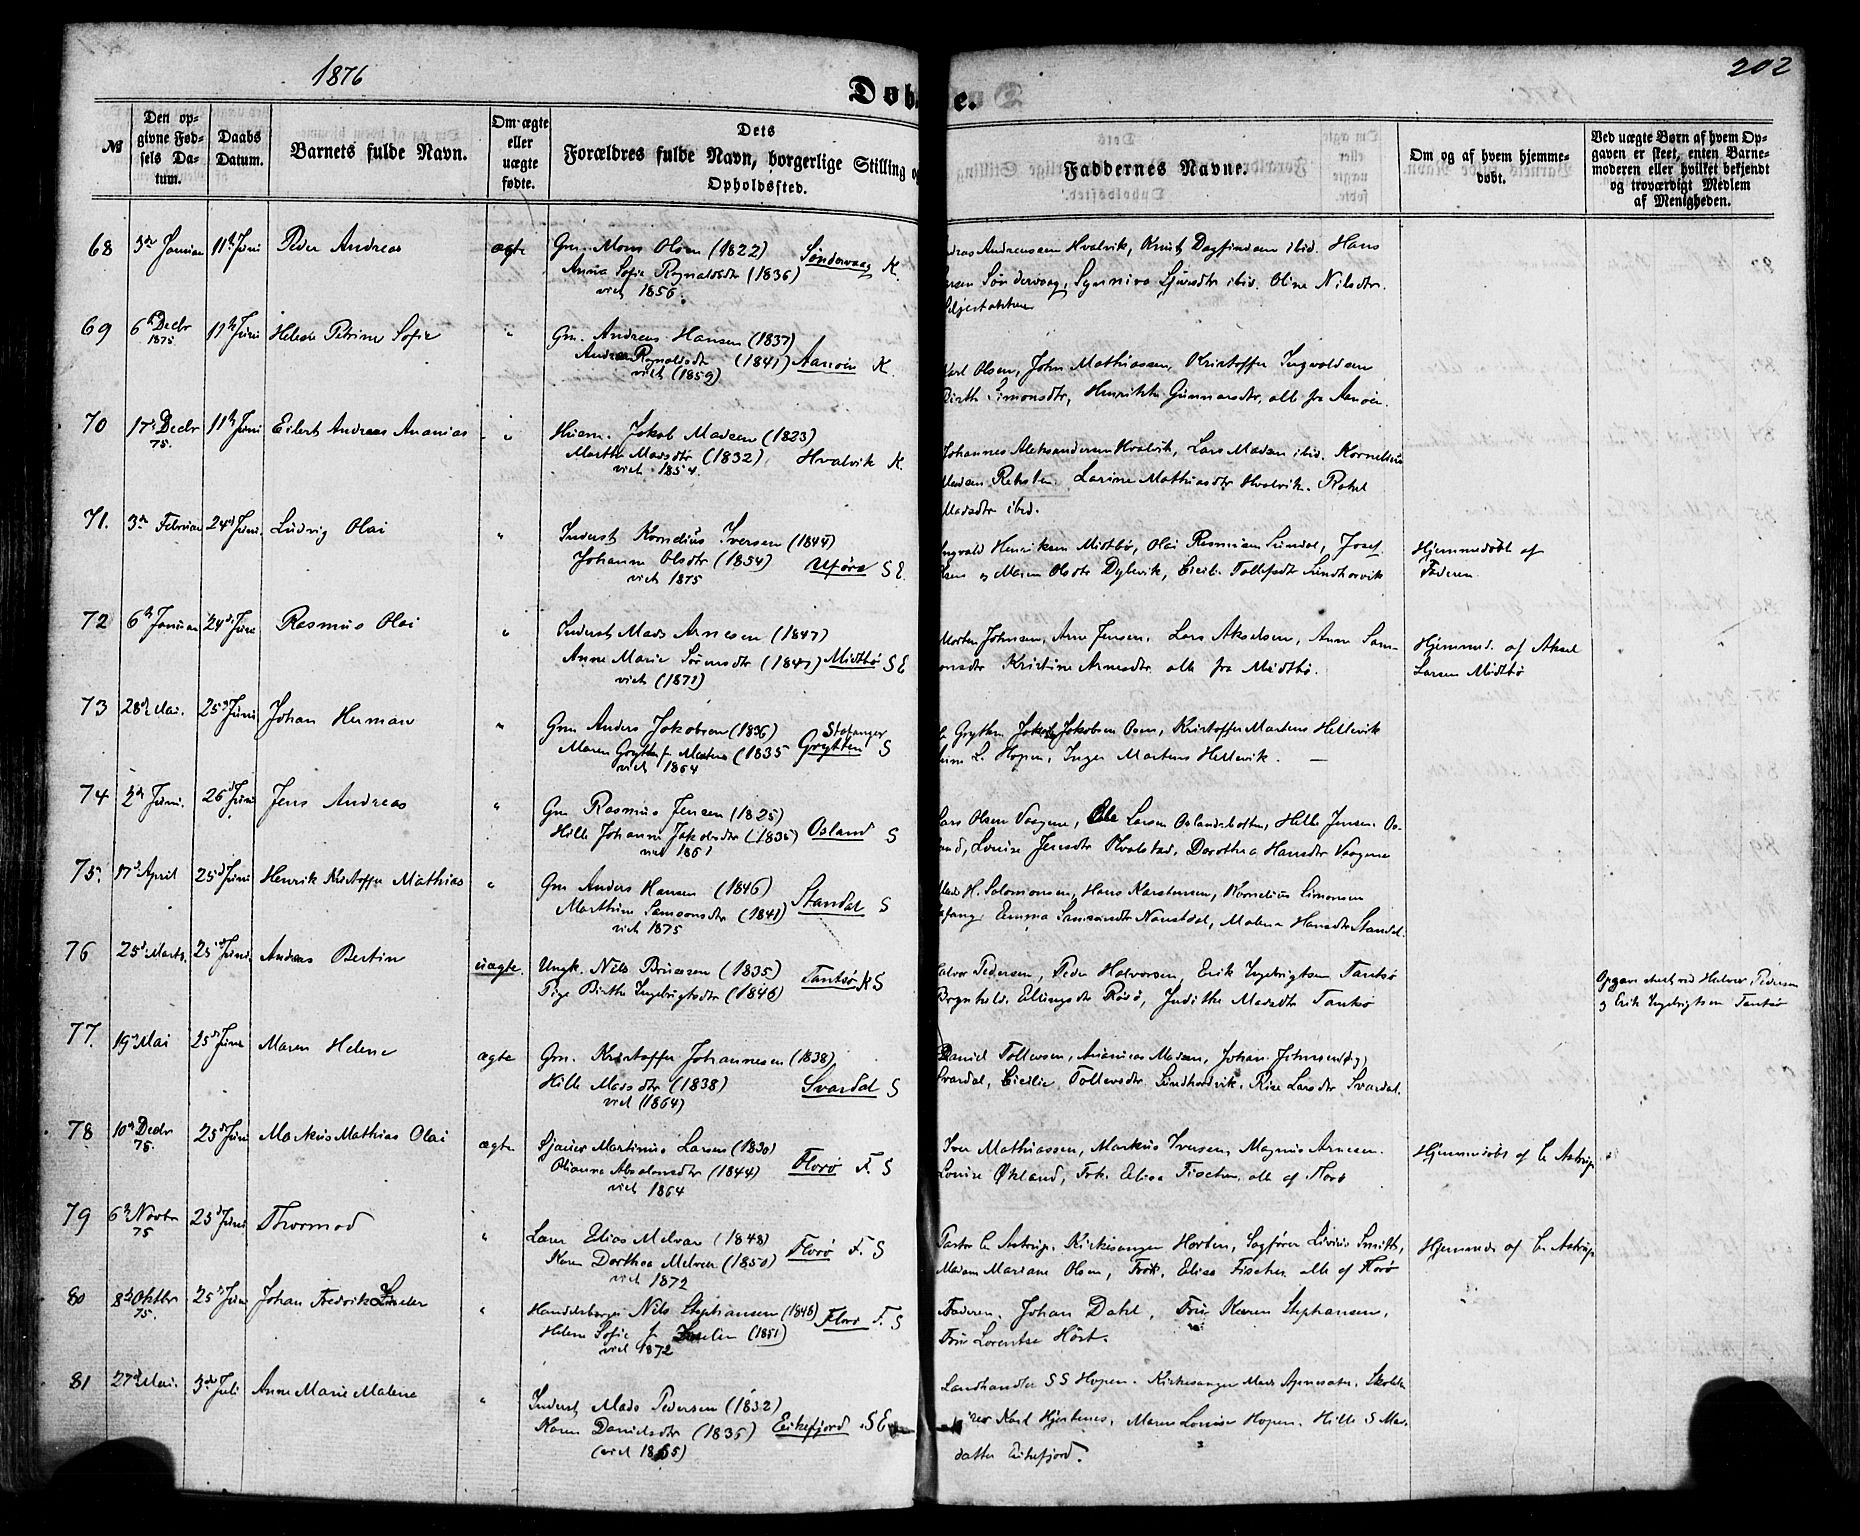 1876
202
Døbte.
№
Den opgivne Fødsels Datum.
Daabs Datum.
Barnets fulde Navn.
Om ægte eller uægte fødte.
Dets
Forældres fulde Navn, borgerlige Stilling og
Opholdssted.
Faddernes Navne.
Om og af hvem hjemmedøbt.
Ved uægte Børn af hvem Opgaven er skeet, enten Barnemoderen eller hvilket bekjendt og troværdigt Medlem af Menigheden.
68 3die Januar 11te Juni Peder Andreas ægte Gm. Mons Olsen (1822) Søndervaag K.
Anna Sofie Rognaldsdtr (1836)
viet 1856.
Andreas Andreassen Hvalvik, Knut Dagfinsen ibid. Hans
Larsen Søndervaag, Synniva Sjursdtr ibid. Oline Nilsdtr.
69 6te Decbr 1875 11te Juni Helene Petrine Sofie " Gm. Andreas Hansen (1837)
Andrea Rognaldsdtr (1841) Aarøen K.
viet (1859)
Karl Olsen, John Mathiassen, Kristoffer Ingvaldsen
Birthe Simonsdtr, Henrikke Gunnarsdtr, alle fra Aarøen.
70 17de Decbr 75. 11te Juni Eilert Andreas Ananias " Huusm. Jakob Madsen (1823)
Marthe Madsdtr (1832) Hvalvik K.
viet 1854.
Johannes Aleksandersen Hvalvik, Lars Madsen ibid. Kornelius
Madsen Reksten. Larine Mathiasdtr Hvalvik. Rakel
Madsdtr ibid.
71. 3die Februar 24de Juni. Ludvig Olai " Inderst Kornelius Iversen (1844)
Johanne Olsdtr (1854) Uføre S E.
viet 1875
Ingvald Henriksen Midtbø, Olai Rasmusen Sundal, Josef
Olsen og Maren Olsdtr Dylevik, Cicilie Tollefsdtr Sundhorvik
Hjemmedøbt af
Faderen
72 6te Januar 24de Juni Rasmus Olai " Inderst Mads Arnesen (1847)
Anne Marie Sørensdtr (1847) Midtbø S E
viet (1871)
Morten Johnsen, Arne Jensen, Lars Akselsen, Anne Sam-
onsdtr Kristine Arnesdtr alle fra Midtbø.
Hjemmed. af Aksel
Larsen Midtbø
73 28de Mai. 25de Juni Johan Herman " Gm Anders Jakobsen (1836) Stafanger
Maren Grytten f. Martens (1835 Grytten S
viet 1864
Grytten Jakob Jakobsen Osen, Kristoffer Martens Hellevik
L. Hopen, Inger Martens Hellevik.
74 2den Juni. 26de Juni Jens Andreas " Gm Rasmus Jensen (1825)
Hille Johanne Jakobsdtr (1835) Osland S
viet 1861
Lars Olsen Vaagene, Ole Larsen Oslandsbotten, Helle Jensen Os-
land, Louise Jensdtr Kvalstad, Dorothea Hansdtr Vaagene
75. 17de April 25de Juni Henrik Kristoffer Mathias " Gm Anders Hansen (1846)
Marthine Samsonsdtr (1841) Standal S
viet 1875
Mads H. Solomonsen, Hans Karstensen, Kornelius Simonsen
Emma Naustdal, Malene Hansdtr Standal.
76 25de Marts. 25de Juni. Andreas Bertin uægte. Ungk. Nils Bruusen (1835)
Pige Birthe Ingebrigtsdtr (1846) Tansø K S
Halvor Pedersen, Peder Halvorsen, Erik Ingebrigtsen Tansø
Bognhild Ellingsdtr Rødø, Judithe Madsdtr Tansø
Opgav. skeet ved Halvor Pedersen
og Erik Ingebrigtsen Tansø
77. 19de Mai 25de Juni Maren Helene ægte Gm. Kristoffer Johannesen (1838)
Hille Madsdtr (1838) Svardal S
viet (1864)
Daniel Tollevsen, Ananias Madsen, Johan
Svardal, Cicilie Tollevsdtr Sundhordvik. Larsdtr Svardal.
78 10de Decbr 75. 25de Juni Markus Mathias Olai ægte Sjauer Martinus Larsen (1830)
Olianne Absalonsdtr (1844) Florø F. S
viet 1864
Iver Mathiassen, Markus Iversen, Magnus Arnesen.
Louise Økland, Frk. Elisa Fischer, alle af Florø
Hjemmedøbt af C. Astrup
79 6te Novbr 75 25de Juni Thormod " Lærer Elias Melvær (1848)
Karen Dorthea Melvær (1850) Florø F. S
viet 1872
Pastor C. Astrup, Kirkesanger Horten, Sagfører Livius Smitt,
Madam Mariane Olsen, Frøk. Elisa Fischer alle af Florø
Hjemmed. af C. Astrup
80 8de Oktbr 75. 25de Juni Johan Fredrik " Handelsborger Nils Stephansen (1846) Florø F. S
Helene Sofie f. (1851)
viet 1872
Faderen, Johan Dahl, Fru Karen Stephansen,
Fru Lorentse Høst.
81 27de Mai. 3die Juli Anne Marie Malene " Inderst Mads Pedersen (1832)
Karen Danielsdtr (1835) Eikefjord S E
(viet 1865)
Landhandler S S Hopen. Kirkesanger Mads Skolelæ-
rer Karl Hjertenes, Maren Louise Hopen. Hille S Mas-
datter Eikefjord.